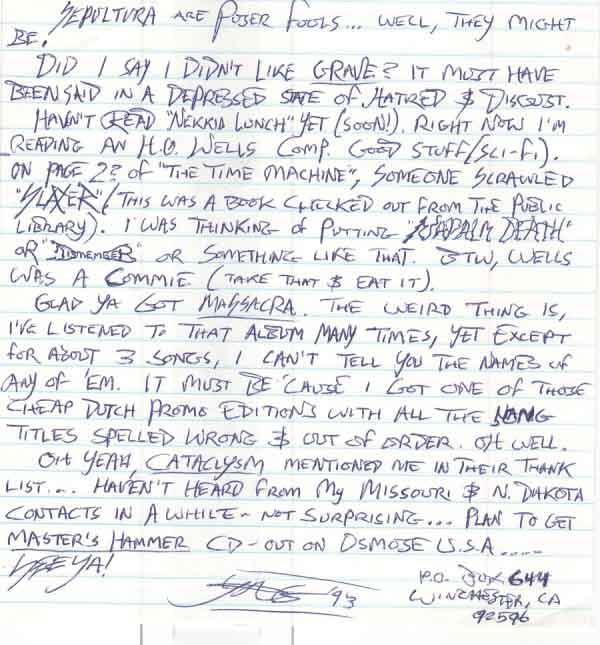 SEPULTURA ARE POSER FOOLS... WELL, THEY MIGHT
BE.
DID I SAY I DIDN'T LIKE GRAVE? IT MUST HAVE
BEEN SAID IN A DEPRESSED STATE OF HATRED & DISGUST.
HAVN'T READ "NEKKID LUNCH" YET (SOON!). RIGHT NOW I'M
READING AN H.G. WELLS COMP. GOOD STUFF (SCI-FI).
ON PAGE 22 OF "THE TIME MACHINE", SOMEONE SCRAWLED
"SLAYER" (THIS WAS A BOOK CHECKED OUT FROM THE PUBLIC
LIBRARY). I WAS THINKING OF PUTTING "NAPALM DEATH"
OR "DISMEMBER" OR SOMETHING LIKE THAT. BTW, WELLS
WAS A COMMIE (TAKE THAT & EAT IT).
GLAD YA GOT MASSACRA. THE WEIRD THING IS,
I'VE LISTENED TO THAT ALBUM MANY TIMES, YET EXCEPT
FOR ABOUT 3 SONGS, I CAN'T TELL YOU THE NAMES OF
ANY OF 'EM. IT MUST BE 'CAUSE I GOT ONE OF THOSE
CHEAP DUTCH PROMO EDITIONS WITH ALL THE SONG
TITLES SPELLED WRONG & OUT OF ORDER. OH WELL.
OH YEAH, CATACLYSM MENTIONED ME IN THEIR THANK
LIST... HAVEN'T HEARD FROM MY MISSOURI & N. DAKOTA
CONTACTS IN A WHILE - NOT SURPRISING... PLAN TO GET
MASTER'S HAMMER CD - OUT ON OSMOSE U.S.A.....
SEE YA!
'93
P.O. BOX 644
WINCHESTER, CA
92596